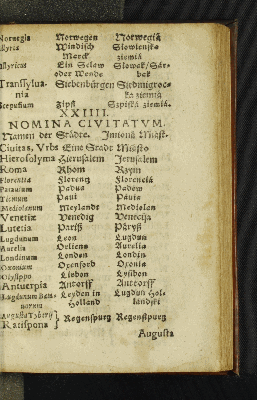 Noruegia Norwegen Norwegiá
Illyris Windisch Slowienska
Marck ziemiá
Illyricus Ein Sclaw Slowak/Sar-
oder Wende bak
Transsylua- Siebenbürgen Siedmigroc-
nia ka ziemiá
Scepusium Zipß Szpiská ziemiá.
XXIIII.
NOMINA CIVITATVM.
Namen der Städte. Imioná Miást.
Ciuitas, Vrbs Eine Stadt Miásto
Hierosolyma Hierusalem Jeruzalem
Roma Rhom Rzym
Florentia Florentz Florencia
Patauium Padua Padew
Ticinum Pauia Páwia
Mediolanum Meylandt Mediolan
Venetiæ Venedig Venecija
Lutetia Pariß Páryß
Lugdunum Leon Lugdun
Aurelia Orliens Aurelia
Londinum London Londin
Oxonium Oxenford Oxonia
Olysippo Lisbon Lysibon
Antuerpia Antorff Anttorff
Lugdunum Bata- Leyden in Lugdun Hol-
uorum Holland landski
Augusta Tyberij
Ratispona Regenspurg Regenspurg
Augusta